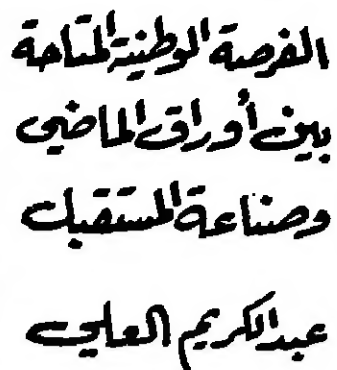 الفرصة الوطنية المتاحة
بين أوراق الماضي
وصناعة المستقبل
عبدالكريم العلي